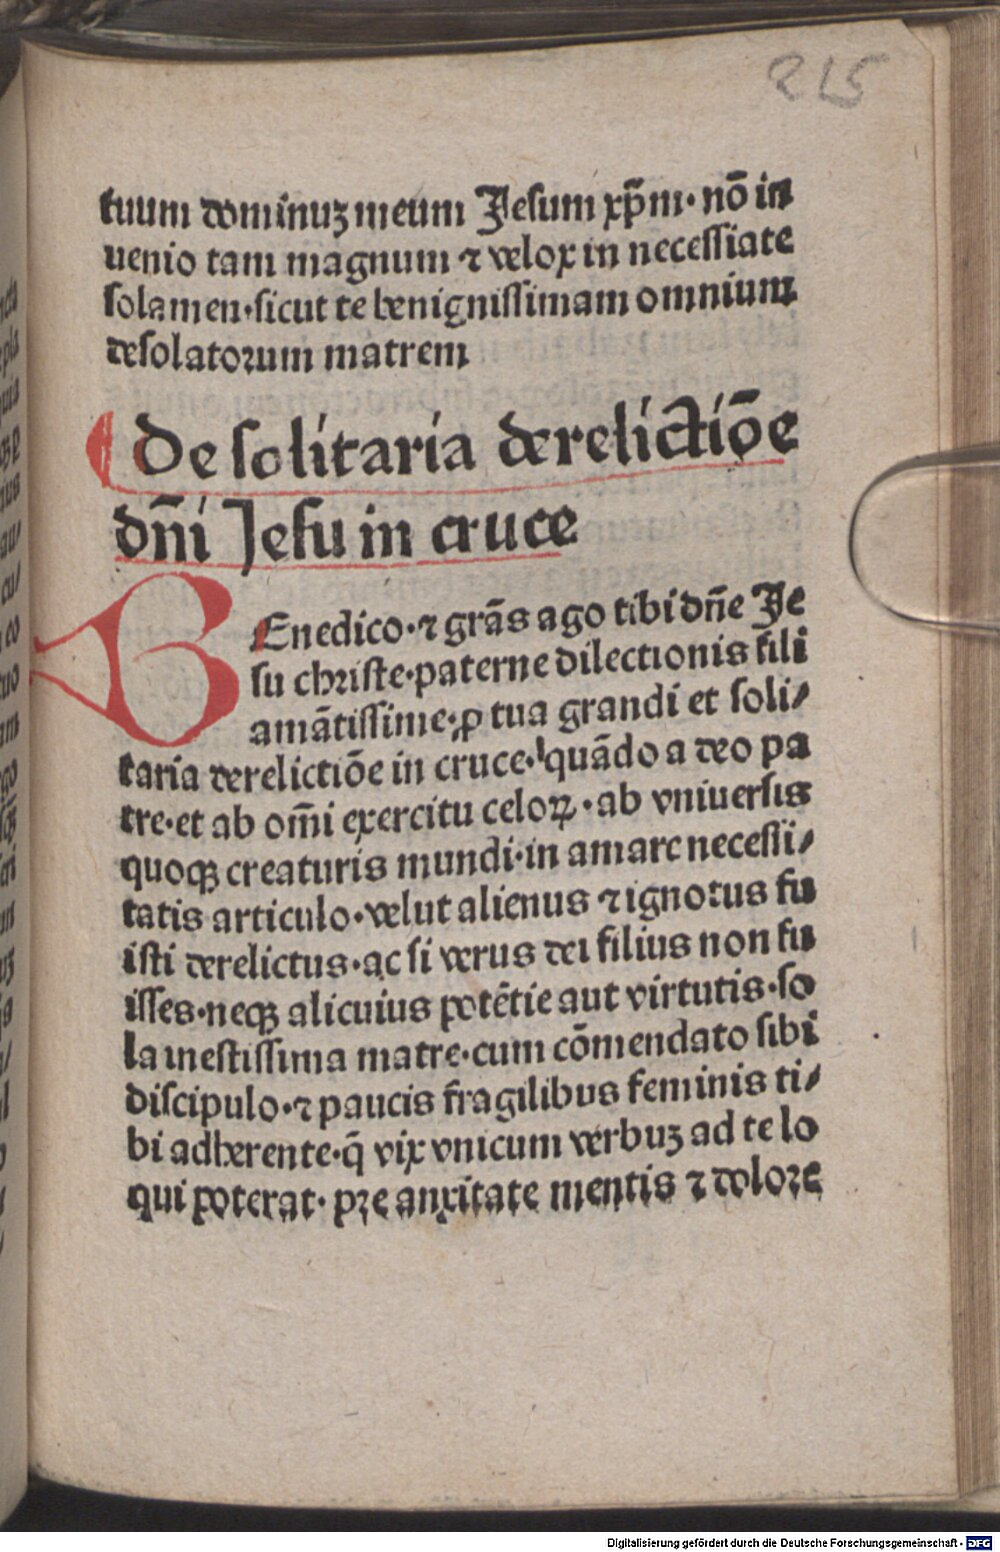 215
tuum dominuʒ meum Jesum xp̄m· nō in
uenio tam magnum ⁊ velox in necessiate
solamen·sicut te benignissimam omnium
desolatoꝛum matrem
De solitaria derelictiōe
dn̄i Jesu in cruce
BEnedico·⁊ grās ago tibi dn̄e Je
su christe·paterne dilectionis fili
amātissime·ꝓ tua grandi et soli/
taria derelictiōe in cruce·quādo a deo pa
tre·et ab om̄i exercitu celoꝝ·ab vniuersis
quoqꝫ creaturis mundi·in amare necessi/
tatis articulo·velut alienus ⁊ ignotus fu
isti derelictus·ac si verus dei filius non fu
isses·neqꝫ alicuius potētie aut virtutis·so
la mestissima matre·cum cōmendato sibi
discipulo·⁊ paucis fragilibus feminis ti/
bi adherente·q̄ vix vnicum verbuʒ ad te lo
qui poterat· pꝛe anxitate mentis ⁊ doloꝛe
Digitalisierung gefördert durch die Deutsche Forschungsgemeinschaft - DFG